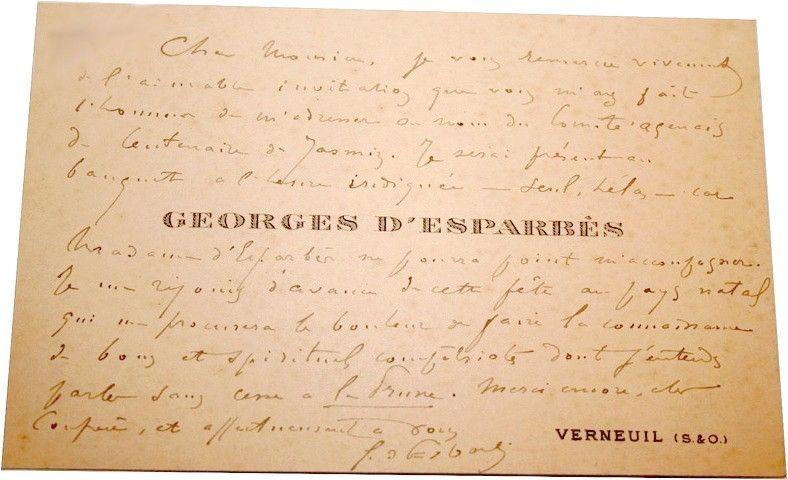 Cher Monsieur, je vous remercie vivement
de l'aimable invitation que vous m'avez fait
l'honneur de m'adresser au nom du Comité agenais
du Centenaire de Jasmin. Je serai présent au
banquet à l'heure indiquée — seul, hélas — car
GEORGES D'ESPARBÈS
Madame d'Esparbès ne pourra point m'accompagner.
Je me réjouis d'avance de cette fête au pays natal
qui me procurera le bonheur de faire la connaissance
de bons et spirituels compatriotes dont j'entends
parler sans cesse à la Prune. Merci encore, cher
Confrère, et affectueusement à vous
G. d'Esparbès
VERNEUIL (S.&O.)